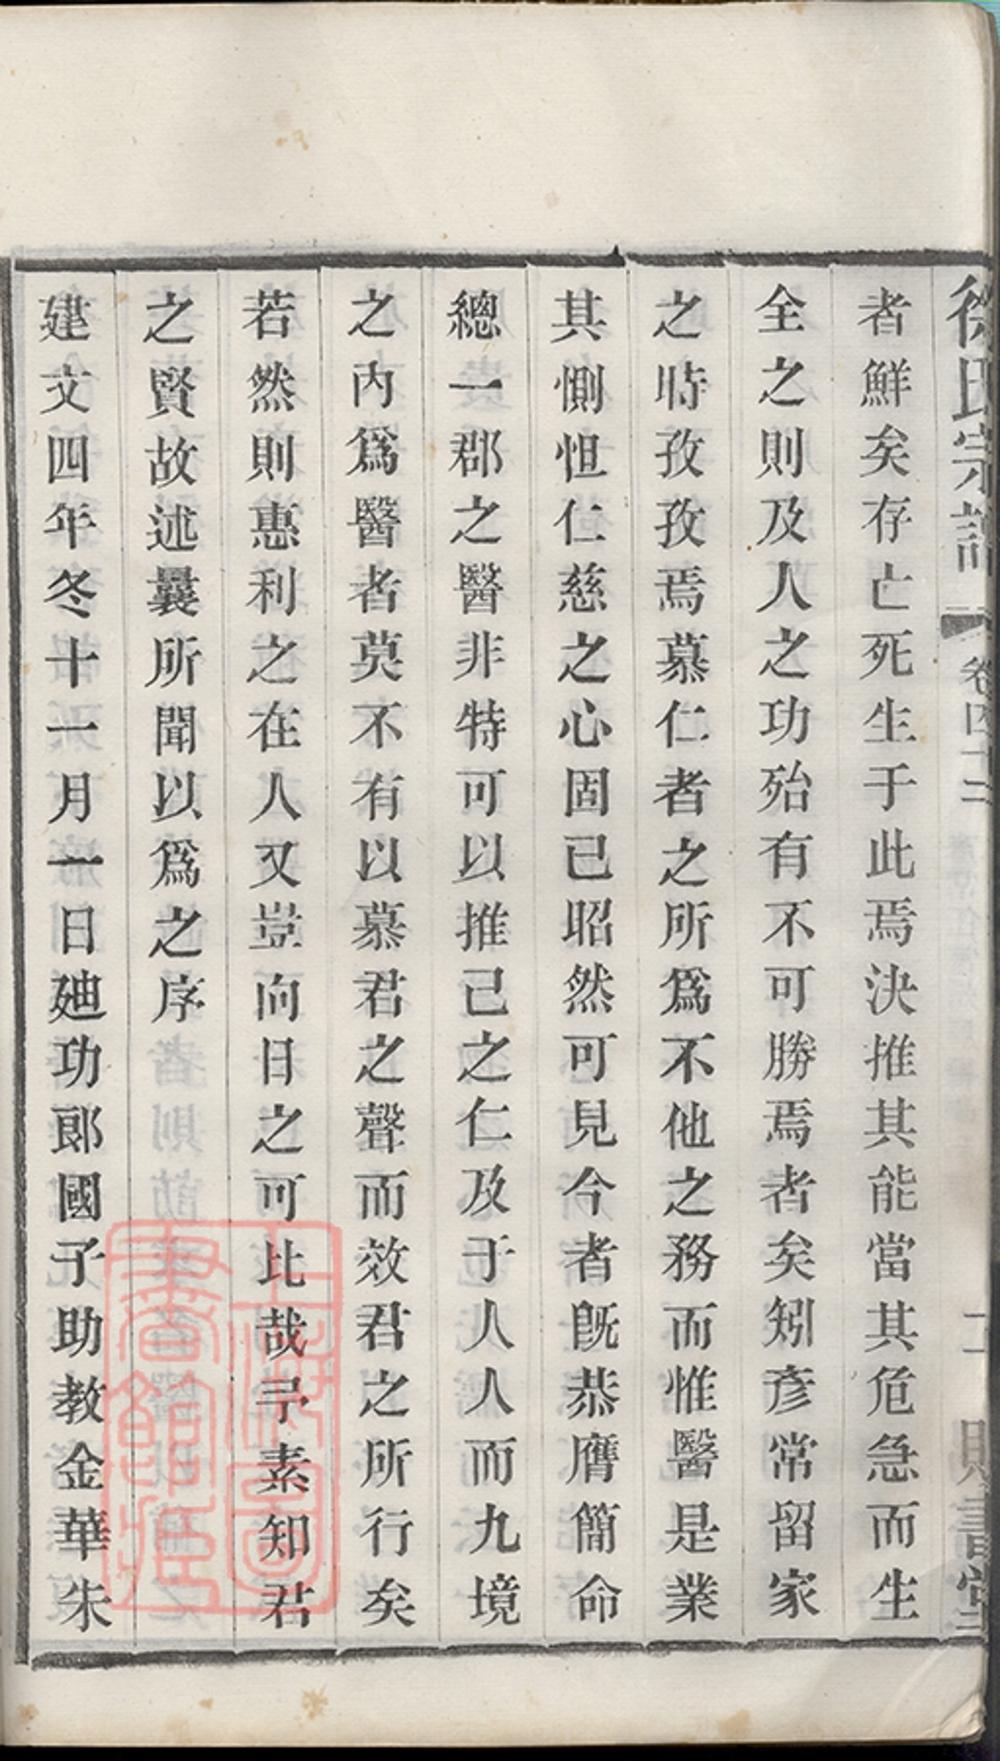 徐氏宗譜 卷四十二 賜書堂
者鮮矣存亡死生于此焉決推其能當其危急而生
全之則及人之功殆有不可勝焉者矣矧彦常留家
之時孜孜焉慕仁者之所爲不他之務而惟醫是業
其惻怛仁慈之心固已昭然可見今者旣恭膺簡命
總一郡之醫非特可以推己之仁及于人人而九境
之內爲醫者莫不有以慕君之聲而效君之所行矣
若然則惠利之在人又豈向日之可比哉予素知君
之賢故述曩所聞以爲之序
建文四年冬十一月一日廸功郎國子助教金華朱
上海圖書館藏